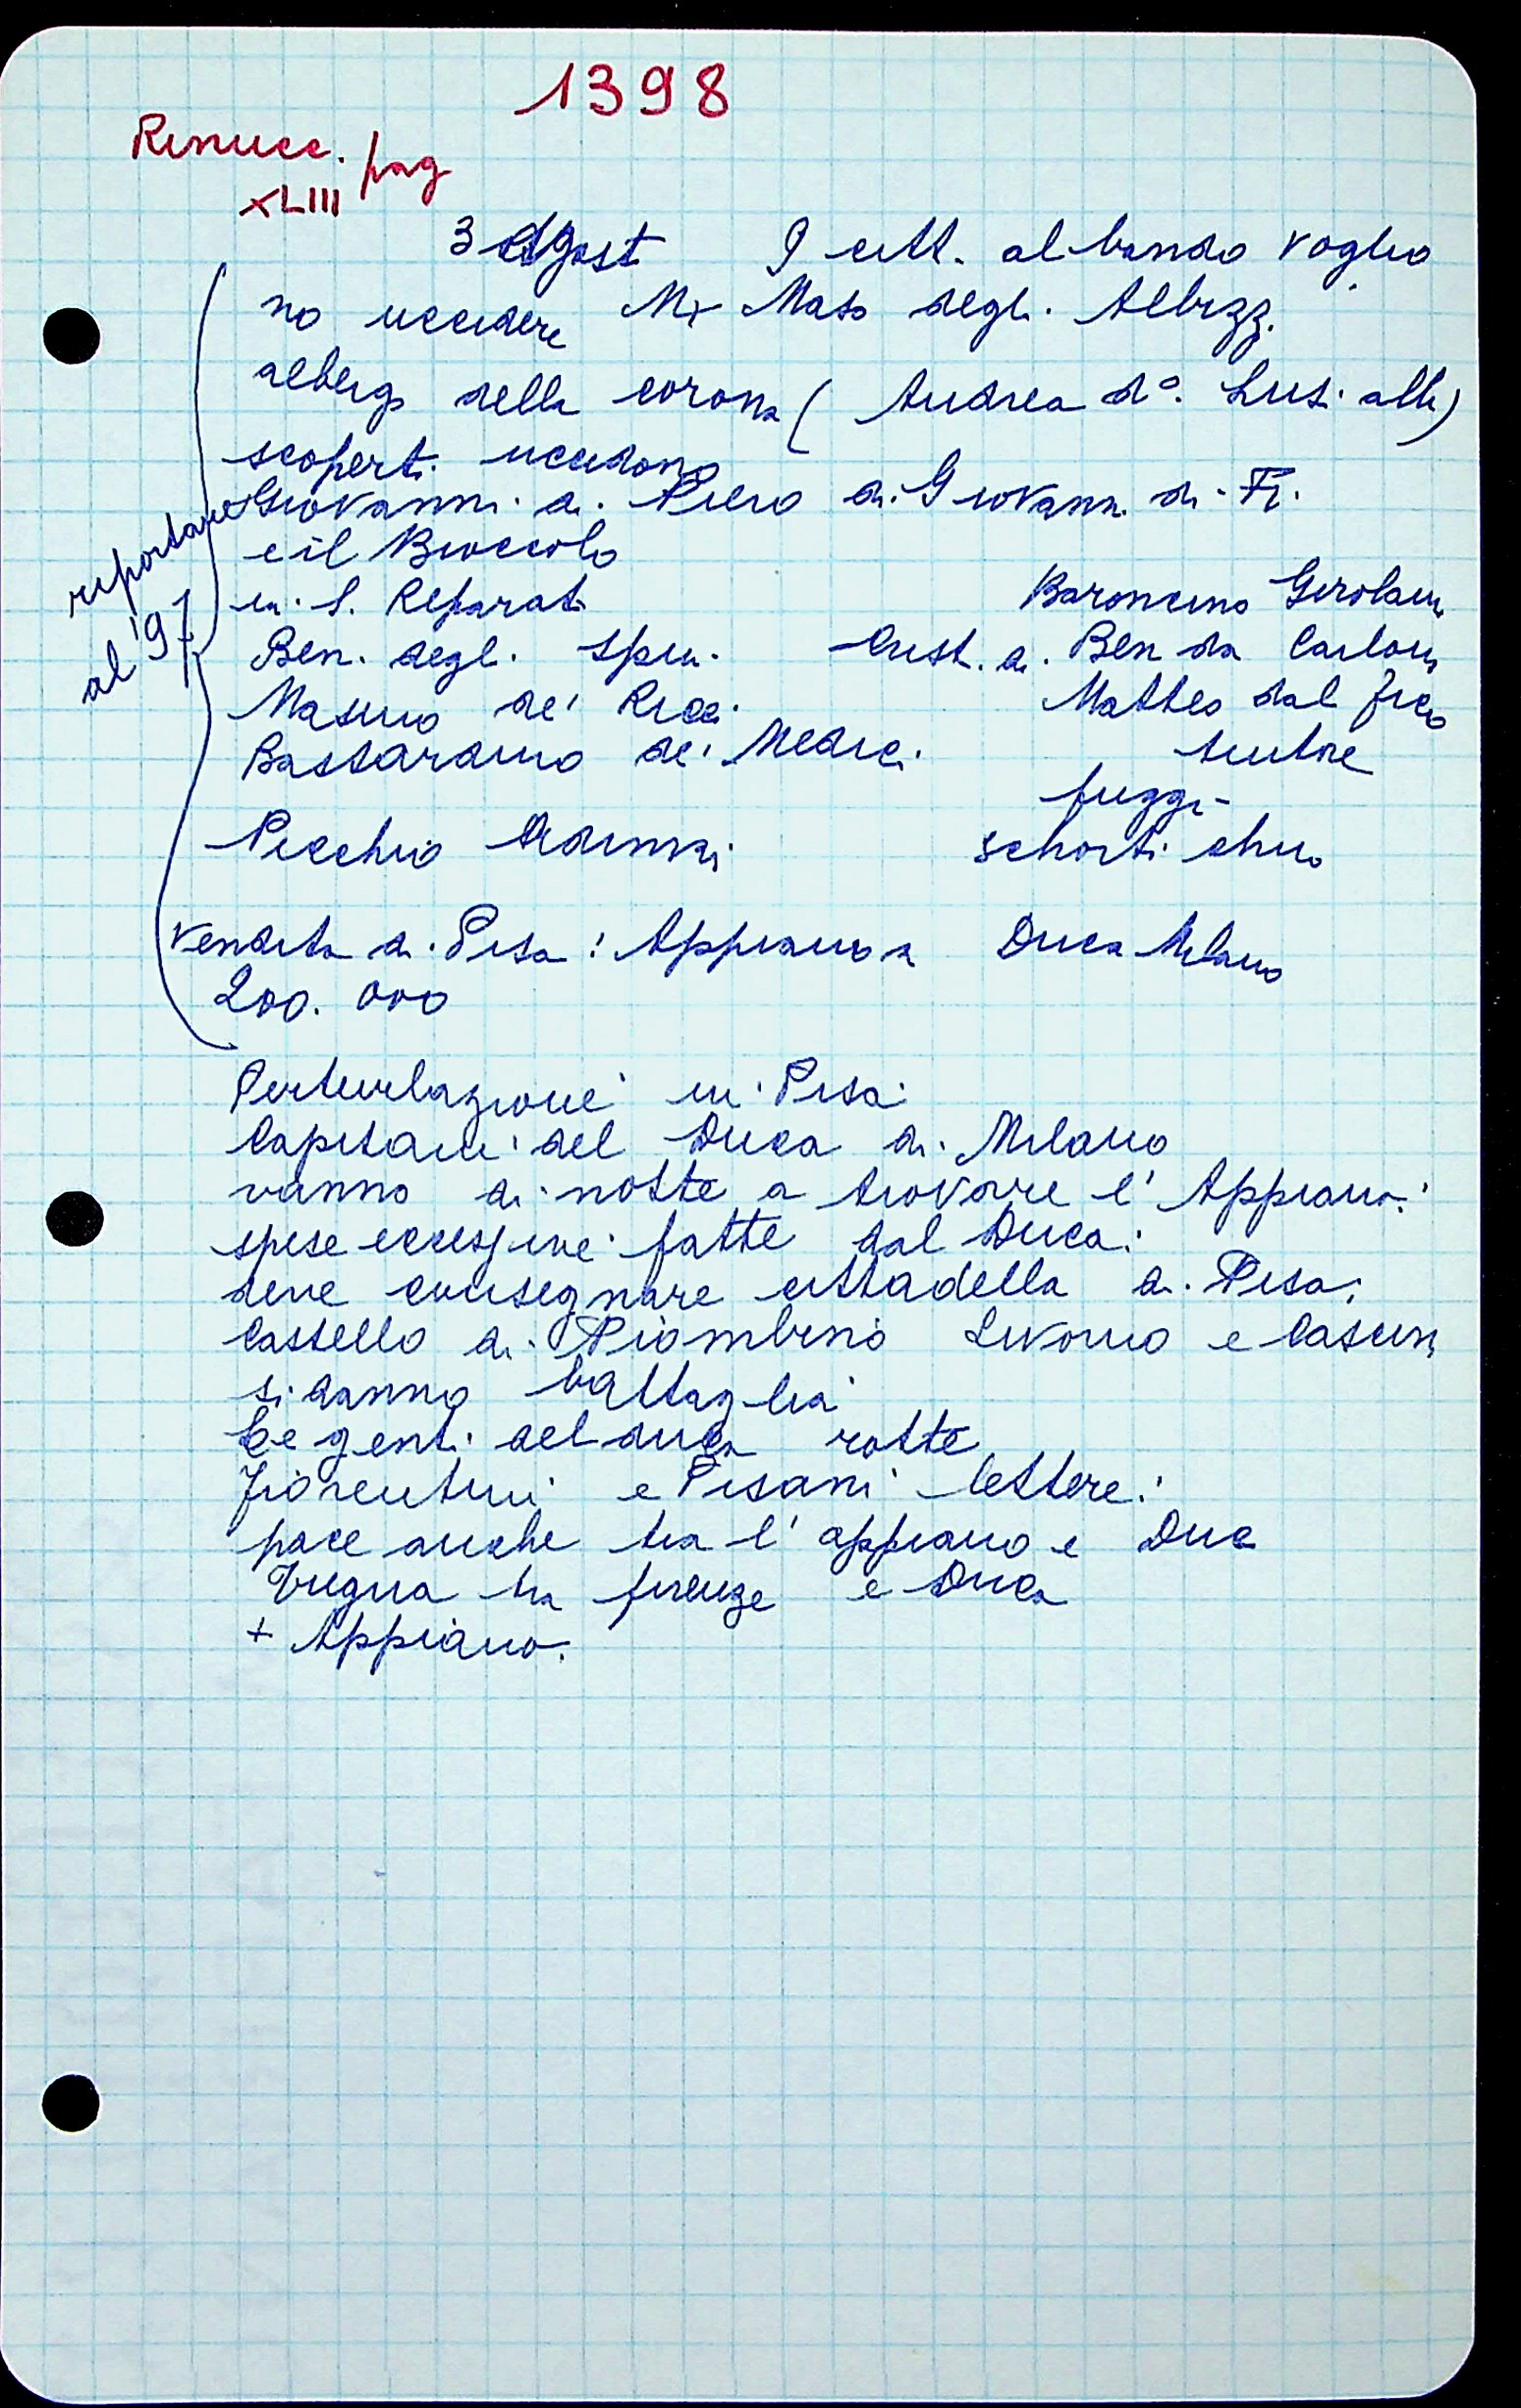 1398
Rinucc. pag
XLIII
3 Agost 9 citt. al bando voglio
no uccidere Mr Maso degli Albizz.
albergo della corona ( Andrea d°. Lusi. alb)
scoperti uccidono
Giovanni di Piero di Giovann. di Fr.
e il Broccolo
in S. Reparat
riportare
al '97
Ben. degl. Spin.
Masino de' Ricci
Bastardino de' Medici
Pecchio Adimari
Baroncino Girolami
Crist. di Ben da Carlon
Matteo dal
tintore
fuggi-
schorti
Vendita di Pisa: Appiano a Duca Milano
200.000
Perturbazione in Pisa
Capitani del Duca di Milano
vanno di notte a trovare l'Appiano:
spese eccessive fatte dal Duca:
deve consegnare cittadella di Pisa,
Castello di Piombino Livorno e Cascin
si danno battaglia
le genti del duca rotte
Fiorentini e Pisani lettere:
pace anche tra l'appiano e Duc
Tregua tra firenze e Duca
+ Appiano.